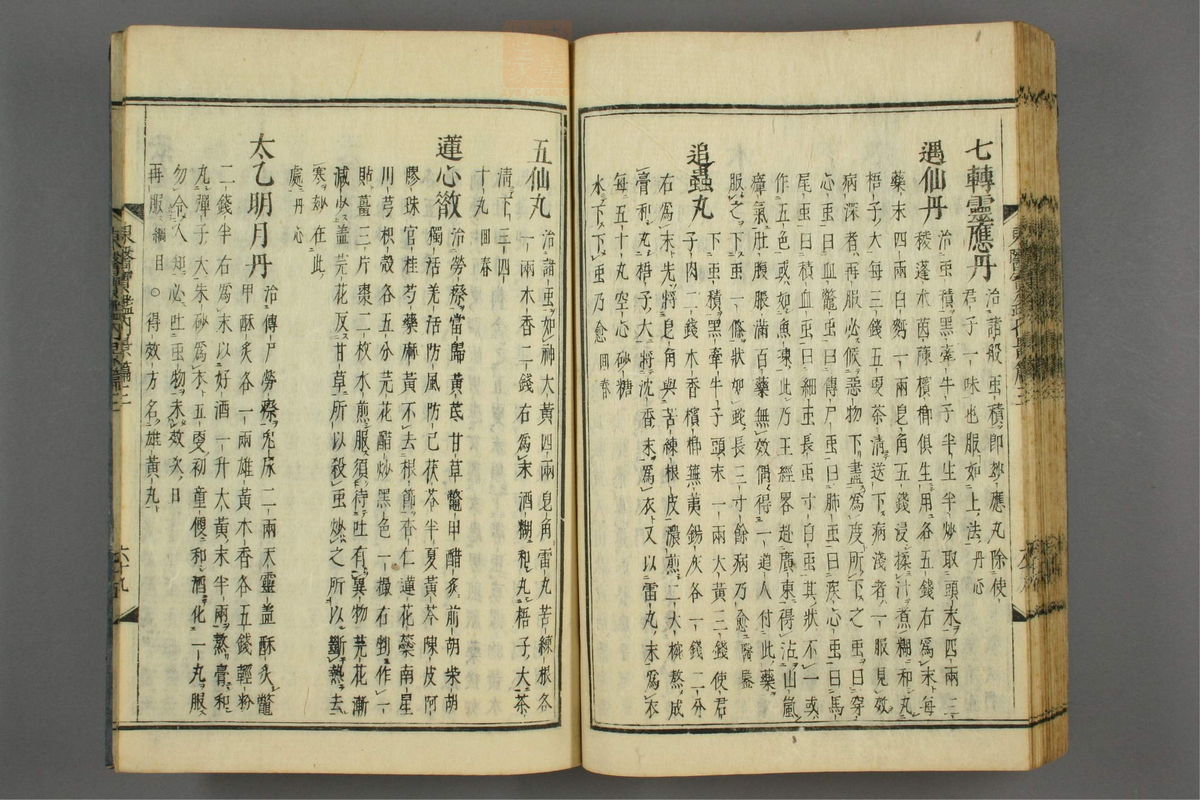 七轉靈應丹 治諸般虫積卽妙應丸除使
君子一味也服如上法丹心
遇仙丹 治虫積黑牽牛子半生半炒取頭末四兩三
稜蓬朮茵蔯檳榔俱生用各五錢右爲末每
藥末四兩白麪一兩皂角五錢浸揉汁煮糊和丸
梧子大每三錢五更茶清送下病淺者一服見效
病深者再服必候惡物下盡爲度所下之虫曰穿
心虫曰血鱉虫曰傳尸虫曰肺虫曰疾心虫曰馬
尾虫曰積血虫曰細虫長虫寸白虫其狀不一或
作五色或如魚凍此乃王經畧赴廣東得沾山嵐
瘴氣肚腹脹滿百藥無效偶得一道人付此藥
服之下虫一條狀如蛇長三寸餘病乃愈醫鑑
追蟲丸 下虫積黑牽牛子頭末一兩大黃三錢使君
子肉二錢木香檳榔蕪荑錫灰各一錢二分
右爲末先將皂角與苦練根皮濃煎二大椀熬成
膏和丸梧子大將沈香末爲衣又以雷丸末爲衣
每五十丸空心砂糖
水下下虫乃愈回春
五仙丸 治諸虫如神大黃四兩皂角雷丸苦練根各
一兩木香二錢右爲末酒糊和丸梧子大茶
清下三四
十丸回春
蓮心散 治勞瘵當歸黃芪甘草鱉甲醋炙前胡柴胡
獨活羌活防風防己茯苓半夏黃芩陳皮阿
膠珠官桂芍藥麻黃不去根節杏仁蓮花蘂南星
川芎枳殼各五分芫花醋炒黑色一撮右剉作一
貼薑三片棗二枚水煎服須待吐有異物芫花漸
減少盖芫花反甘草所以殺虫妙之所以斷熱去
寒刼在此
處丹心
太乙明月丹 治傳尸勞瘵兎屎二兩天靈盖酥炙鱉
甲酥炙各一兩雄黃木香各五錢輕粉
二錢半右爲末以好酒一升大黃末半兩熬膏和
丸彈子大朱砂爲衣五更初童便和酒化一丸服
勿令人知必吐虫物未效次日
再服綱目○得效方名雄黃丸